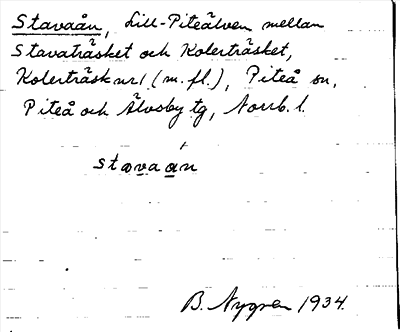 Stavaån, Lill-Piteälven mellan
Stavaträsket och Kolerträsket,
Kolerträsk nr 1 (m. fl.), Piteå sn,
Piteå och Älvsby tg, Norrb. l.
stavaån
B. Nygren 1934.